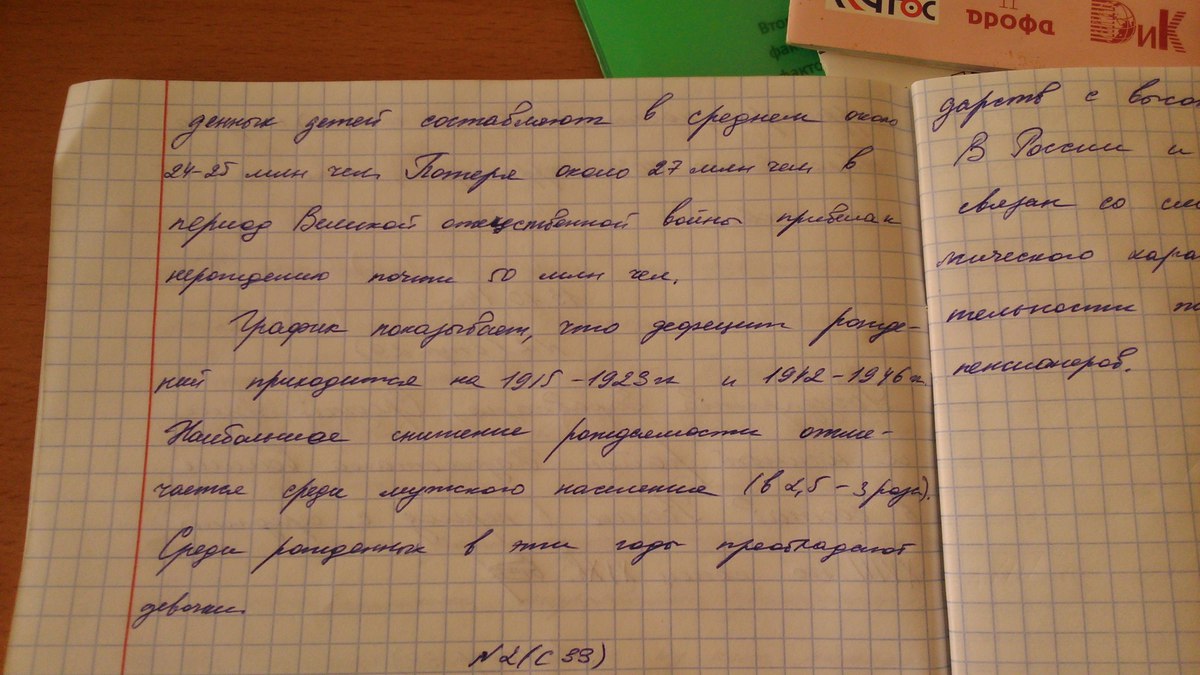 Вто
фак
факто
ДРОФА
ДиК
денных детей составляют в среднем около
24-25 млн чел. Потеря около 27 млн чел в
период Великой отечественной войны
нерождению почти 50 млн чел.
График показывает, что дефицит рожде-
ний приходится на 1915-1923гг и 1942-1946гг.
Наибольшее снижение рождаемости отме-
чается среди мужского населения (в 2,5-3 раза).
Среди рожденных в эти годы преобладают
девочки.
№2(с 33)
дарств с высо
В России и
связан со
мического хара
тельности
пенсионеров.